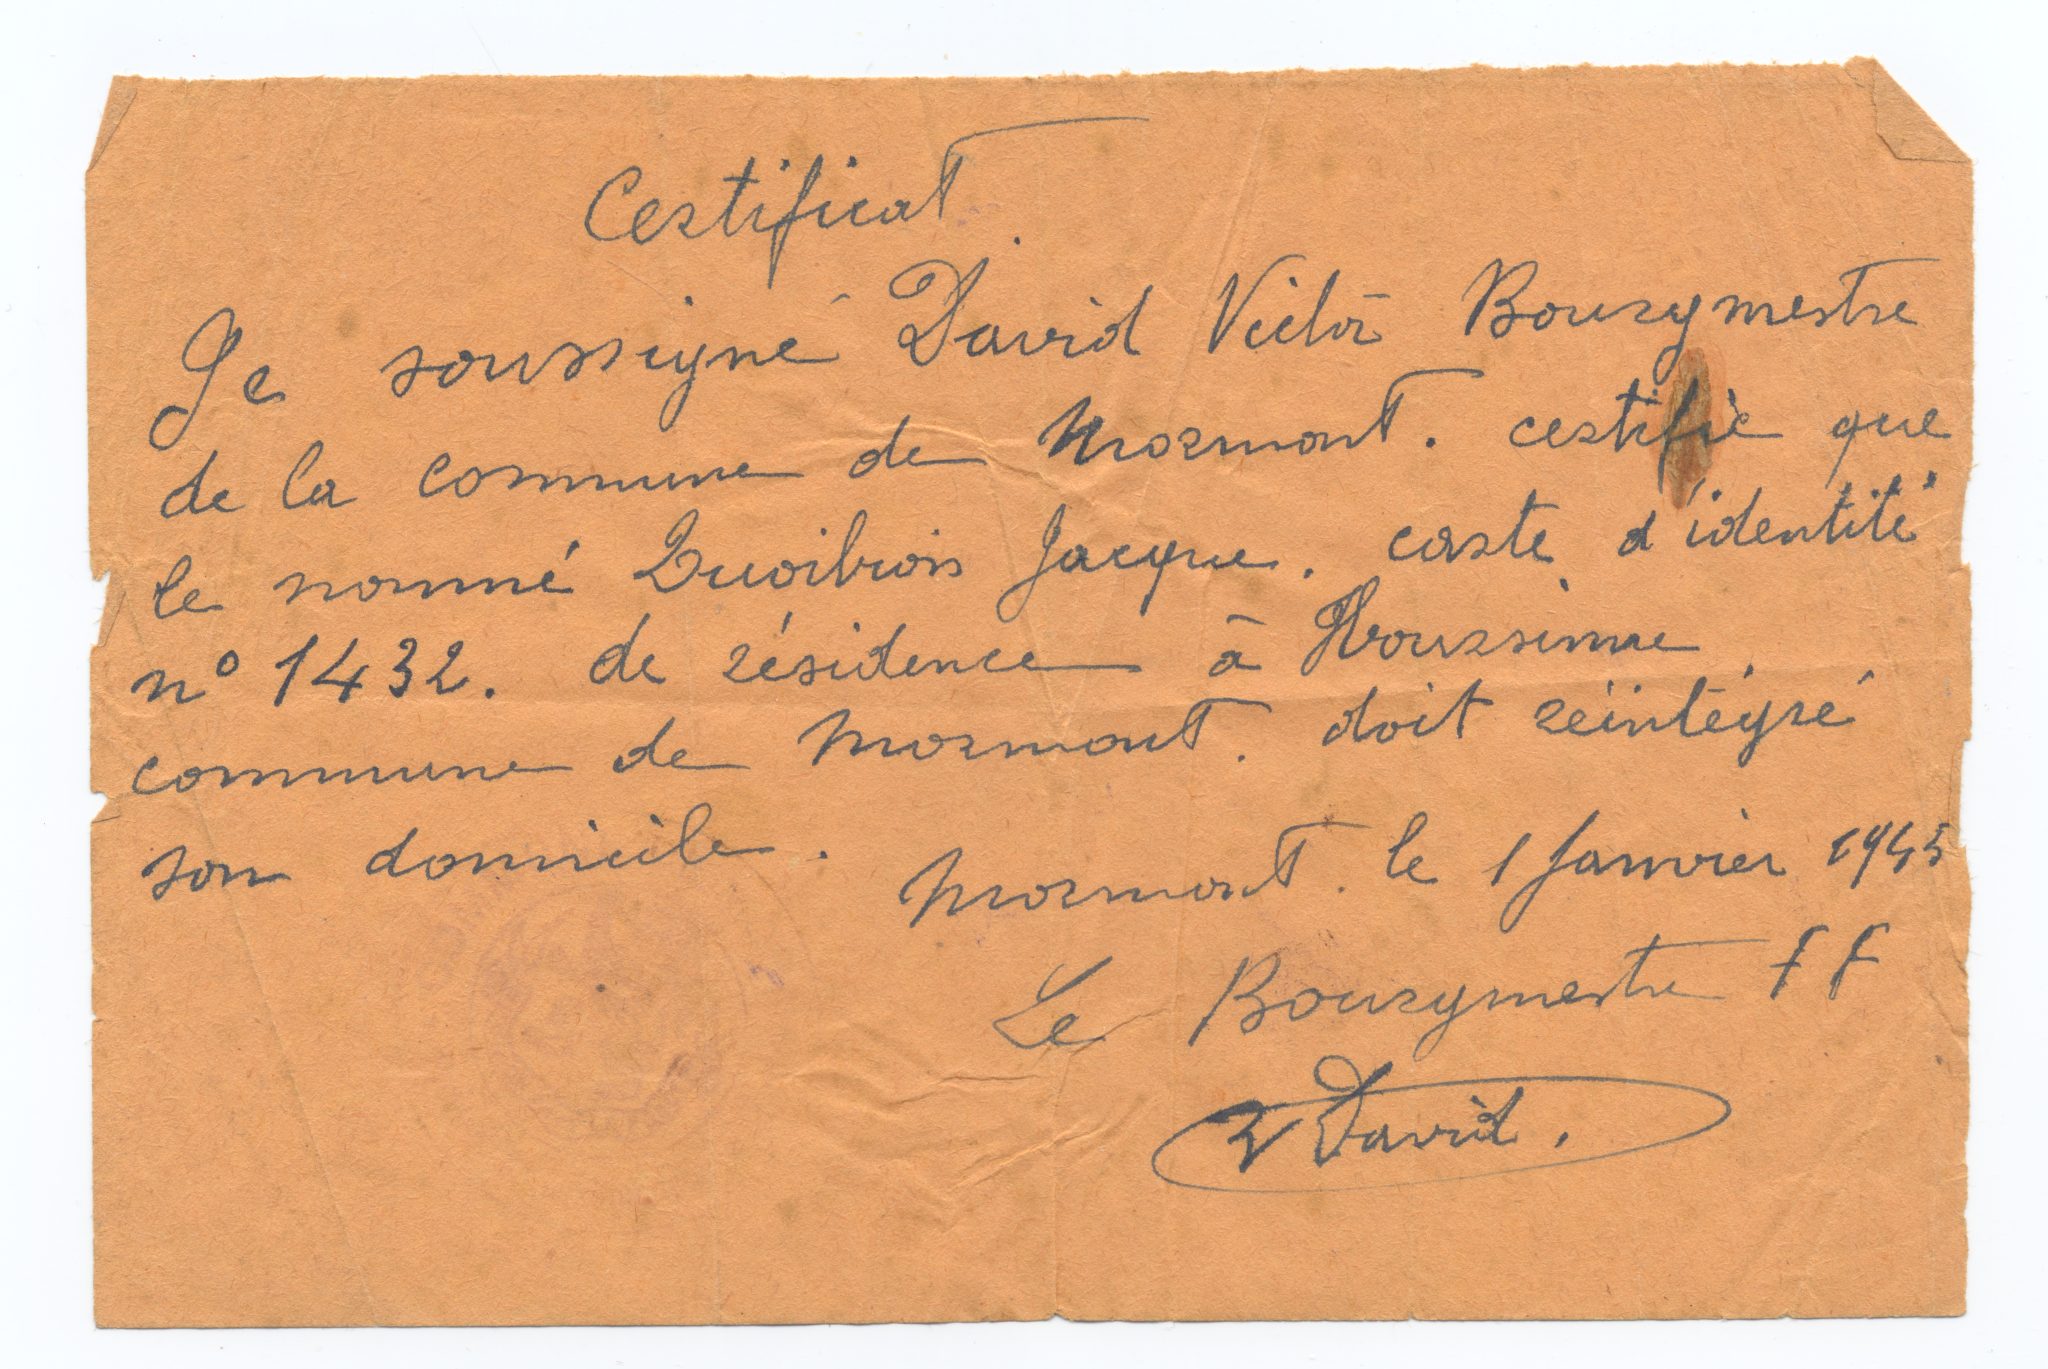 Certificat
Je soussigné David Victor Bourgmestre
de la commune de Mormont. certifie que
le nommé Quoibion Jacque. carte d'identité
n° 1432. de résidence à
commune de Mormont. doit réintégré
son domicile.
Mormont. le 1 Janvier 1945
Le Bourgmestre FF
V David.